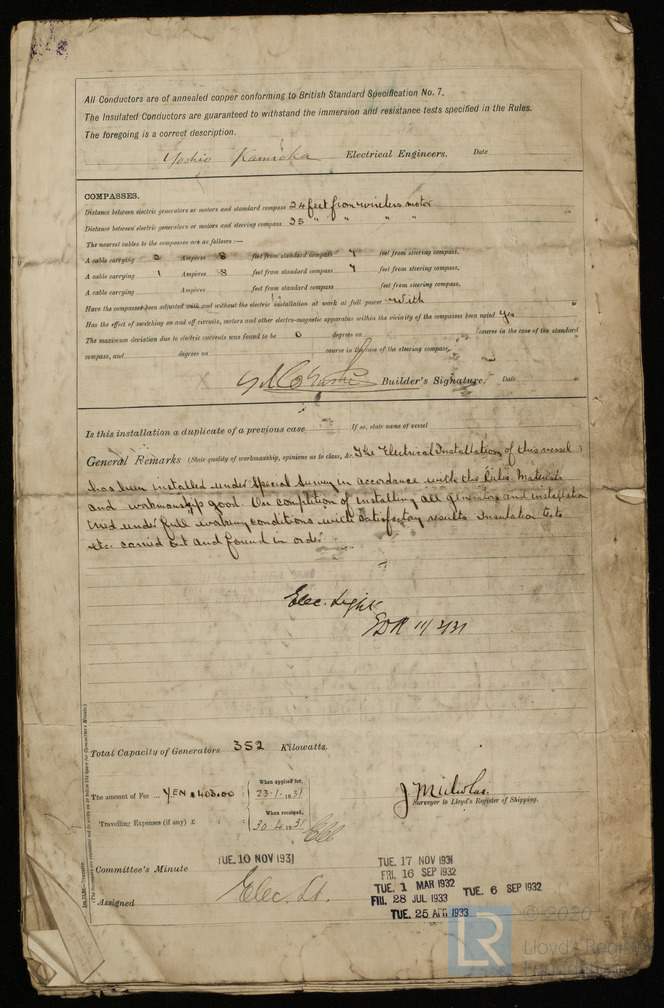 All Conductors are of annealed copper conforming to British Standard Specification No. 7.
The Insulated Conductors are guaranteed to withstand the immersion and resistance tests specified in the Rules.
The foregoing is a correct description.
Yoshio Kamioka Electrical Engineers. Date
COMPASSES.
Distance between electric generators or motors and standard compass 24 feet from wireless motor
Distance between electric generators or motors and steering compass 25 " " " "
The nearest cables to the compasses are as follows:—
A cable carrying 2 Ampères 8 feet from standard compass 7 feet from steering compass.
A cable carrying 1 Ampères 8 feet from standard compass 7 feet from steering compass.
A cable carrying Ampères feet from standard compass feet from steering compass.
Have the compasses been adjusted with and without the electric installation at work at full power With
Has the effect of switching on and off circuits, motors and other electro-magnetic apparatus within the vicinity of the compasses been noted Yes
The maximum deviation due to electric currents was found to be 0 degrees on course in the case of the standard
compass, and degrees on course in the case of the steering compass.
Builder's Signature. Date
Is this installation a duplicate of a previous case If so, state name of vessel
General Remarks (State quality of workmanship, opinions as to class, &c. The Electrical Installation of this vessel)
has been installed under Special Survey in accordance with the Rules. Materials
and workmanship good. On completion of installing all generators and installation
tried under full working conditions with satisfactory results. Insulation tests
etc. carried out and found in order.
Elec. Light
Total Capacity of Generators 352 Kilowatts.
The amount of Fee ... YEN 403.00
When applied for, 23.1.1931
Travelling Expenses (if any) £
When received, 30.4.1931
J. Nicholas.
Surveyor to Lloyd's Register of Shipping.
Committee's Minute TUE. 10 NOV 1931
TUE. 17 NOV 1931
FRI. 16 SEP 1932
TUE. 1 MAR 1932
TUE. 6 SEP 1932
FRI. 28 JUL 1933
TUE. 25 APR 1933
Assigned Elec. Lt.
LR
© 2020
Lloyd's Register
Foundation